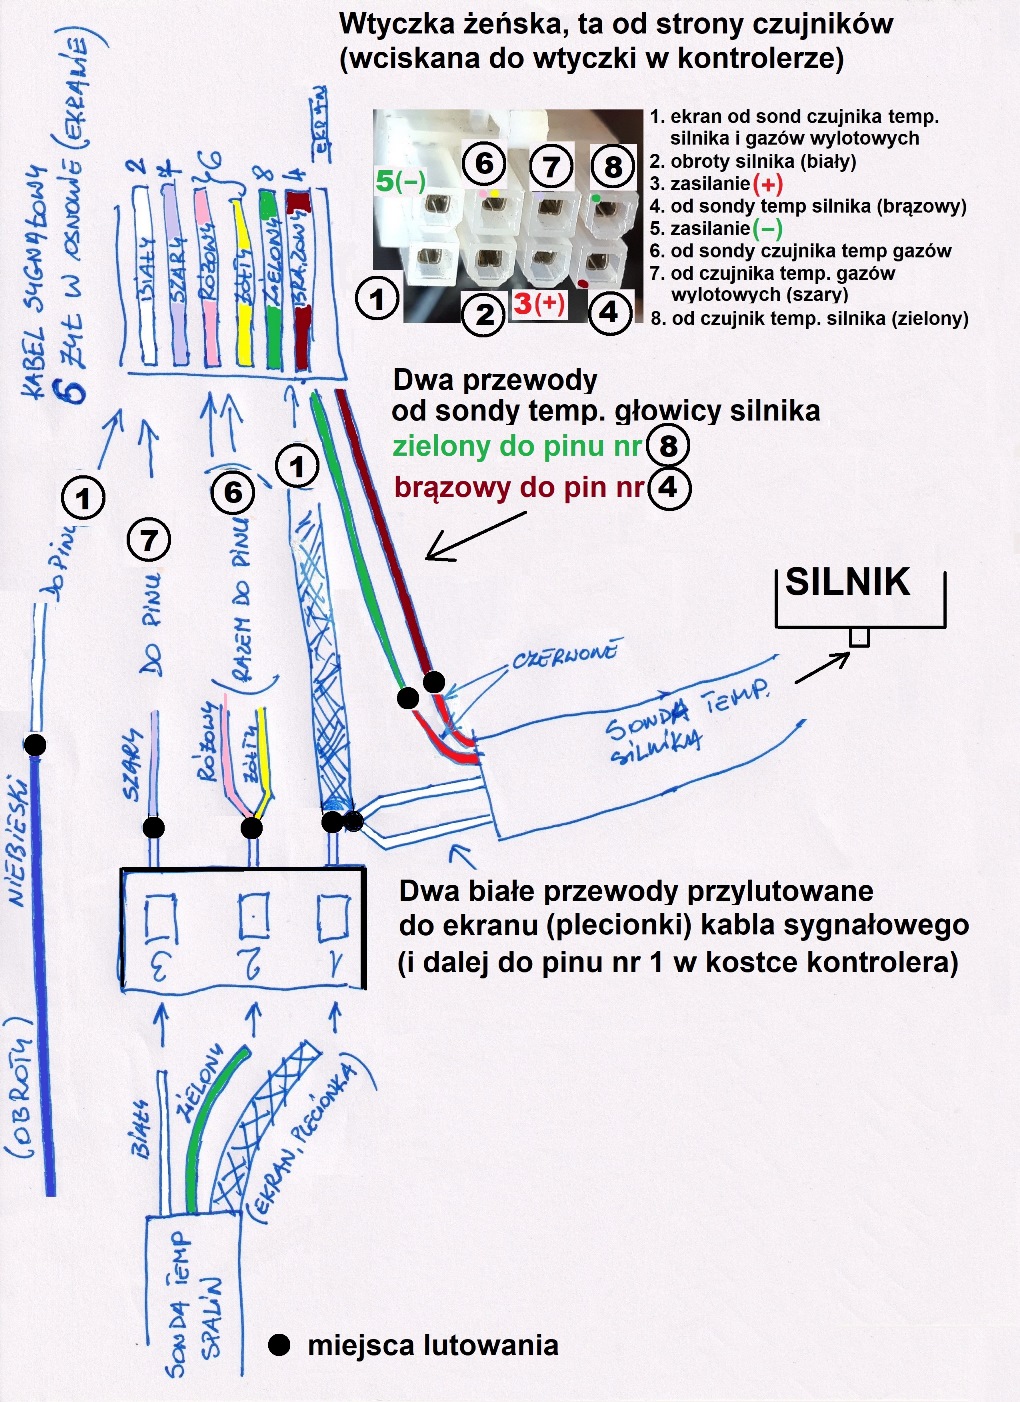 Wtyczka żeńska, ta od strony czujników
(wciskana do wtyczki w kontrolerze)
KABEL SYGNAŁOWY
6 ŻYŁ W OSNOWIE (EKRANIE)
2
7
6
8
4
EKRAN
BIAŁY
SZARY
RÓŻOWY
ŻÓŁTY
ZIELONY
BRĄZOWY
5(–)
6
7
8
1
2
3(+)
4
1. ekran od sond czujnika temp.
silnika i gazów wylotowych
2. obroty silnika (biały)
3. zasilanie(+)
4. od sondy temp silnika (brązowy)
5. zasilanie(–)
6. od sondy czujnika temp gazów
7. od czujnika temp. gazów
wylotowych (szary)
8. od czujnik temp. silnika (zielony)
Dwa przewody
od sondy temp. głowicy silnika
zielony do pinu nr 8
brązowy do pin nr 4
1
DO PINU
7
DO PINU
6
(RAZEM DO PINU)
1
SILNIK
CZERWONE
SONDA TEMP.
SILNIKA
SZARY
RÓŻOWY
ŻÓŁTY
NIEBIESKI
(OBROTY)
Dwa białe przewody przylutowane
do ekranu (plecionki) kabla sygnałowego
(i dalej do pinu nr 1 w kostce kontrolera)
3
2
1
BIAŁY
ZIELONY
(EKRAN, PLECIONKA)
SONDA TEMP
SPALIN
miejsca lutowania